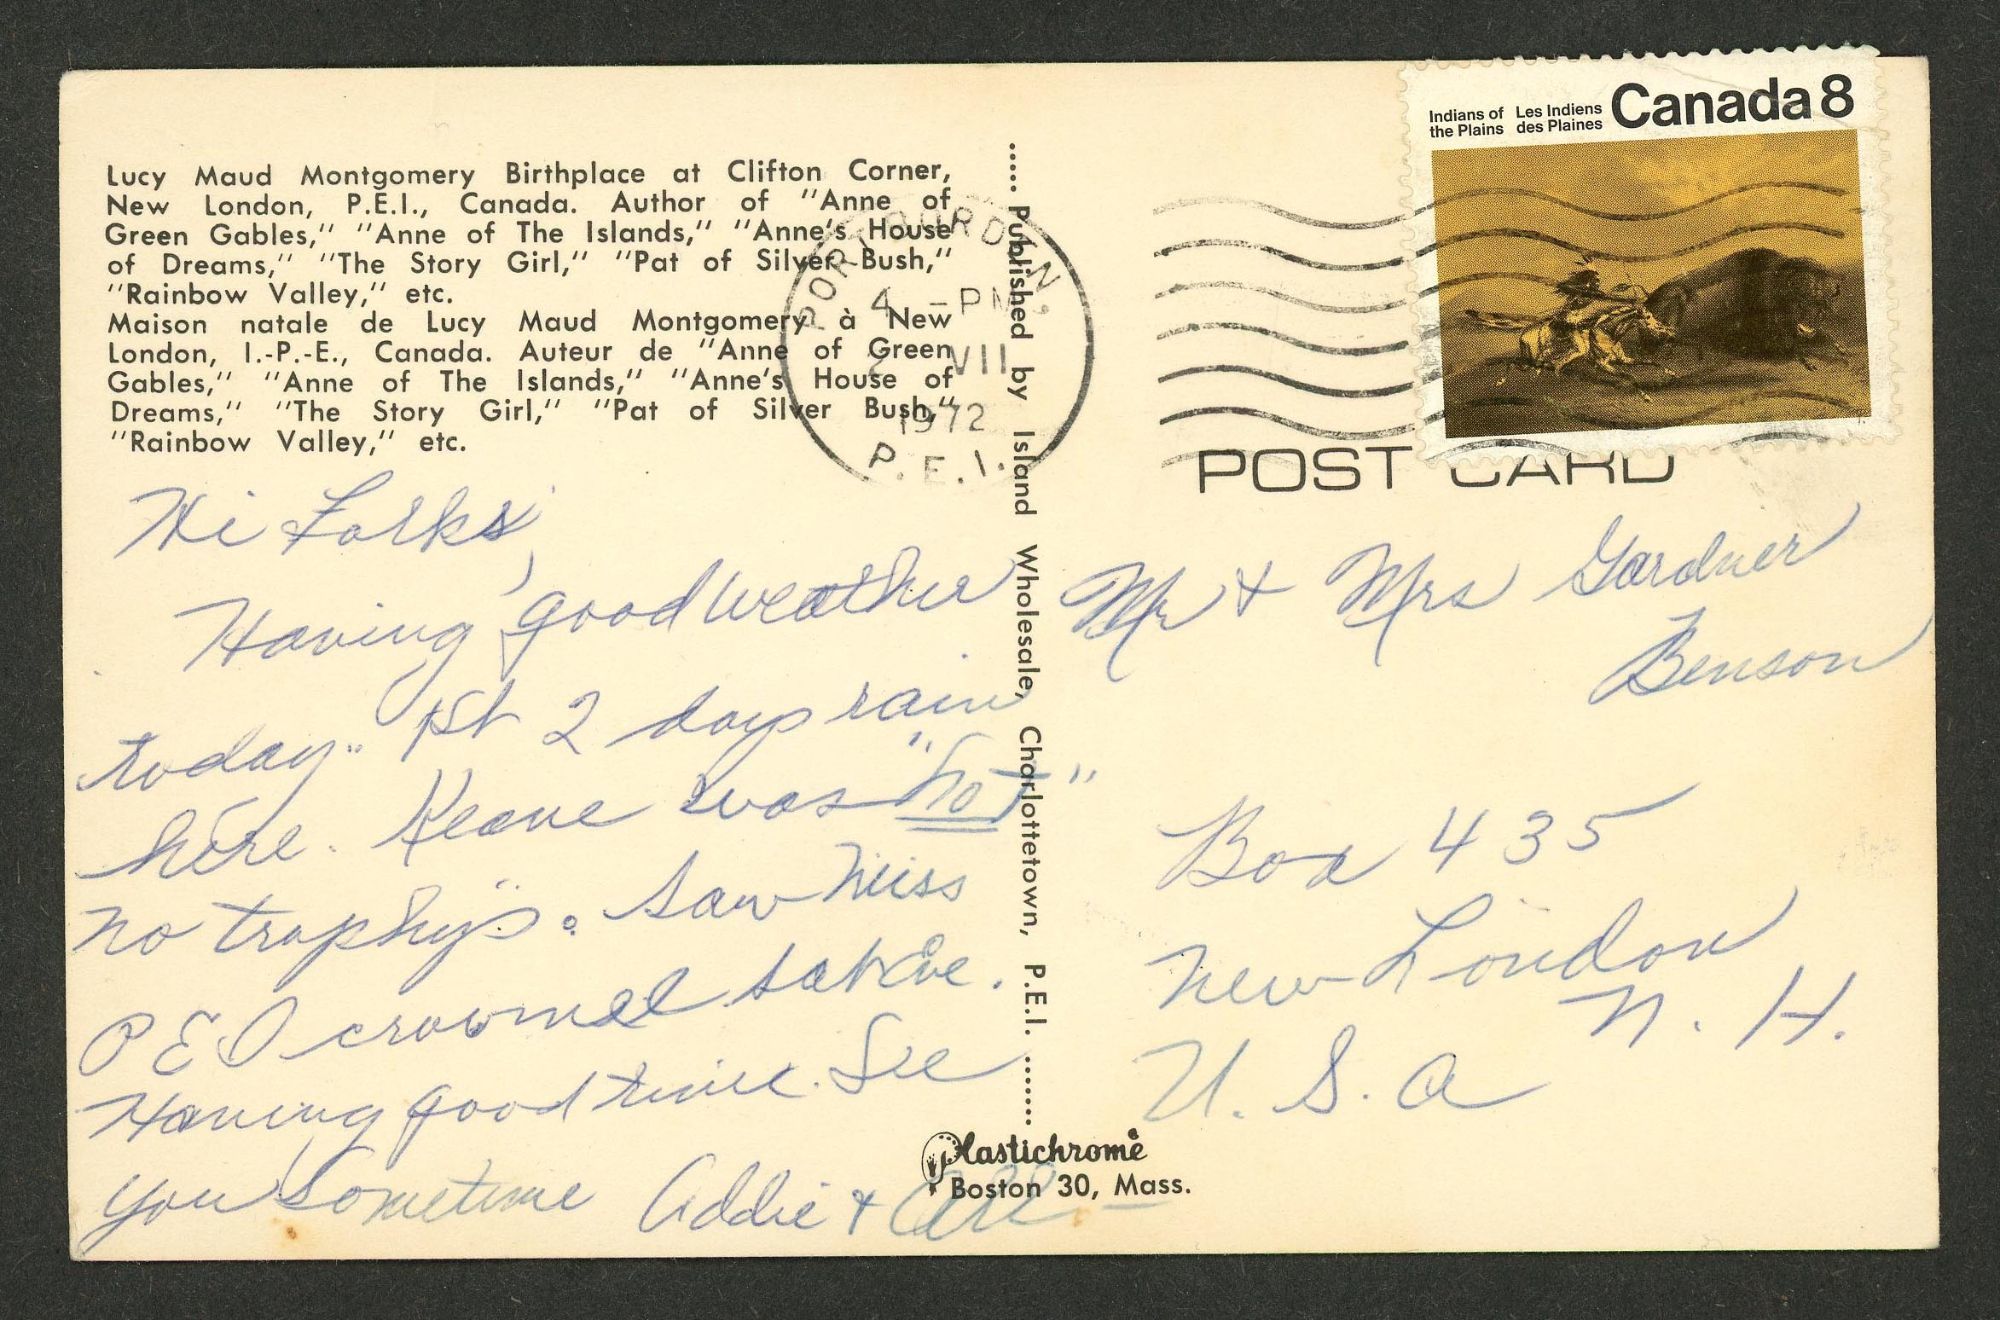 Lucy Maud Montgomery Birthplace at Clifton Corner,
New London, P.E.I., Canada. Author of "Anne of
Green Gables," "Anne of The Islands," "Anne's House
of Dreams," "The Story Girl," "Pat of Silver Bush,"
"Rainbow Valley," etc.
Maison natale de Lucy Maud Montgomery à New
London, I.-P.-E., Canada. Auteur de "Anne of Green
Gables," "Anne of The Islands," "Anne's House of
Dreams," "The Story Girl," "Pat of Silver Bush,"
"Rainbow Valley," etc.
Hi Folks,
Having good weather
today. 1st 2 days rain
here. Keane was "hot"
no trophy's. Saw Miss
P E I crowned Sat Eve.
Having good time. See
you sometime Addie & All
..... Published by Island Wholesale, Charlottetown, P.E.I. .......
Plastichrome
Boston 30, Mass.
PORT BORDEN,
4 - PM
VII
1972
P.E.I.
Indians of
the Plains
Les Indiens
des Plaines
Canada 8
POST CARD
Mr & Mrs Gardner
Benson
Box 435
New London
N. H.
U. S. A